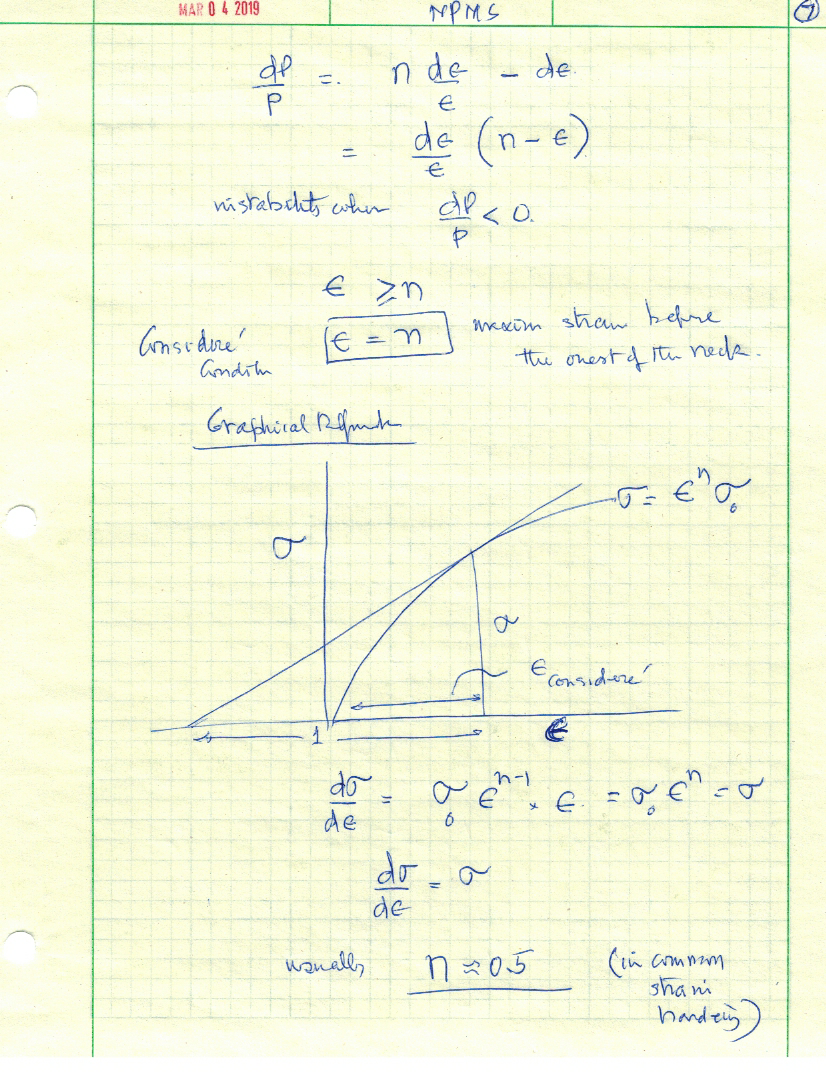 MAR 0 4 2019
NPMS
7
dP/P = n dϵ/ϵ − dϵ
= dϵ/ϵ (n − ϵ)
instability when dP/P < 0.
ϵ ≥ n
Considere' Condition
ϵ = n
maxim strain before
the onset of the neck.
Graphical
σ = ϵ^n σ_0
σ
σ
ϵ_considere'
1
ϵ
dσ/dϵ = σ_0 ϵ^{n-1} × ϵ = σ_0 ϵ^n = σ
dσ/dϵ = σ
usually n ≈ 0.5 (in common
strain
hardening)